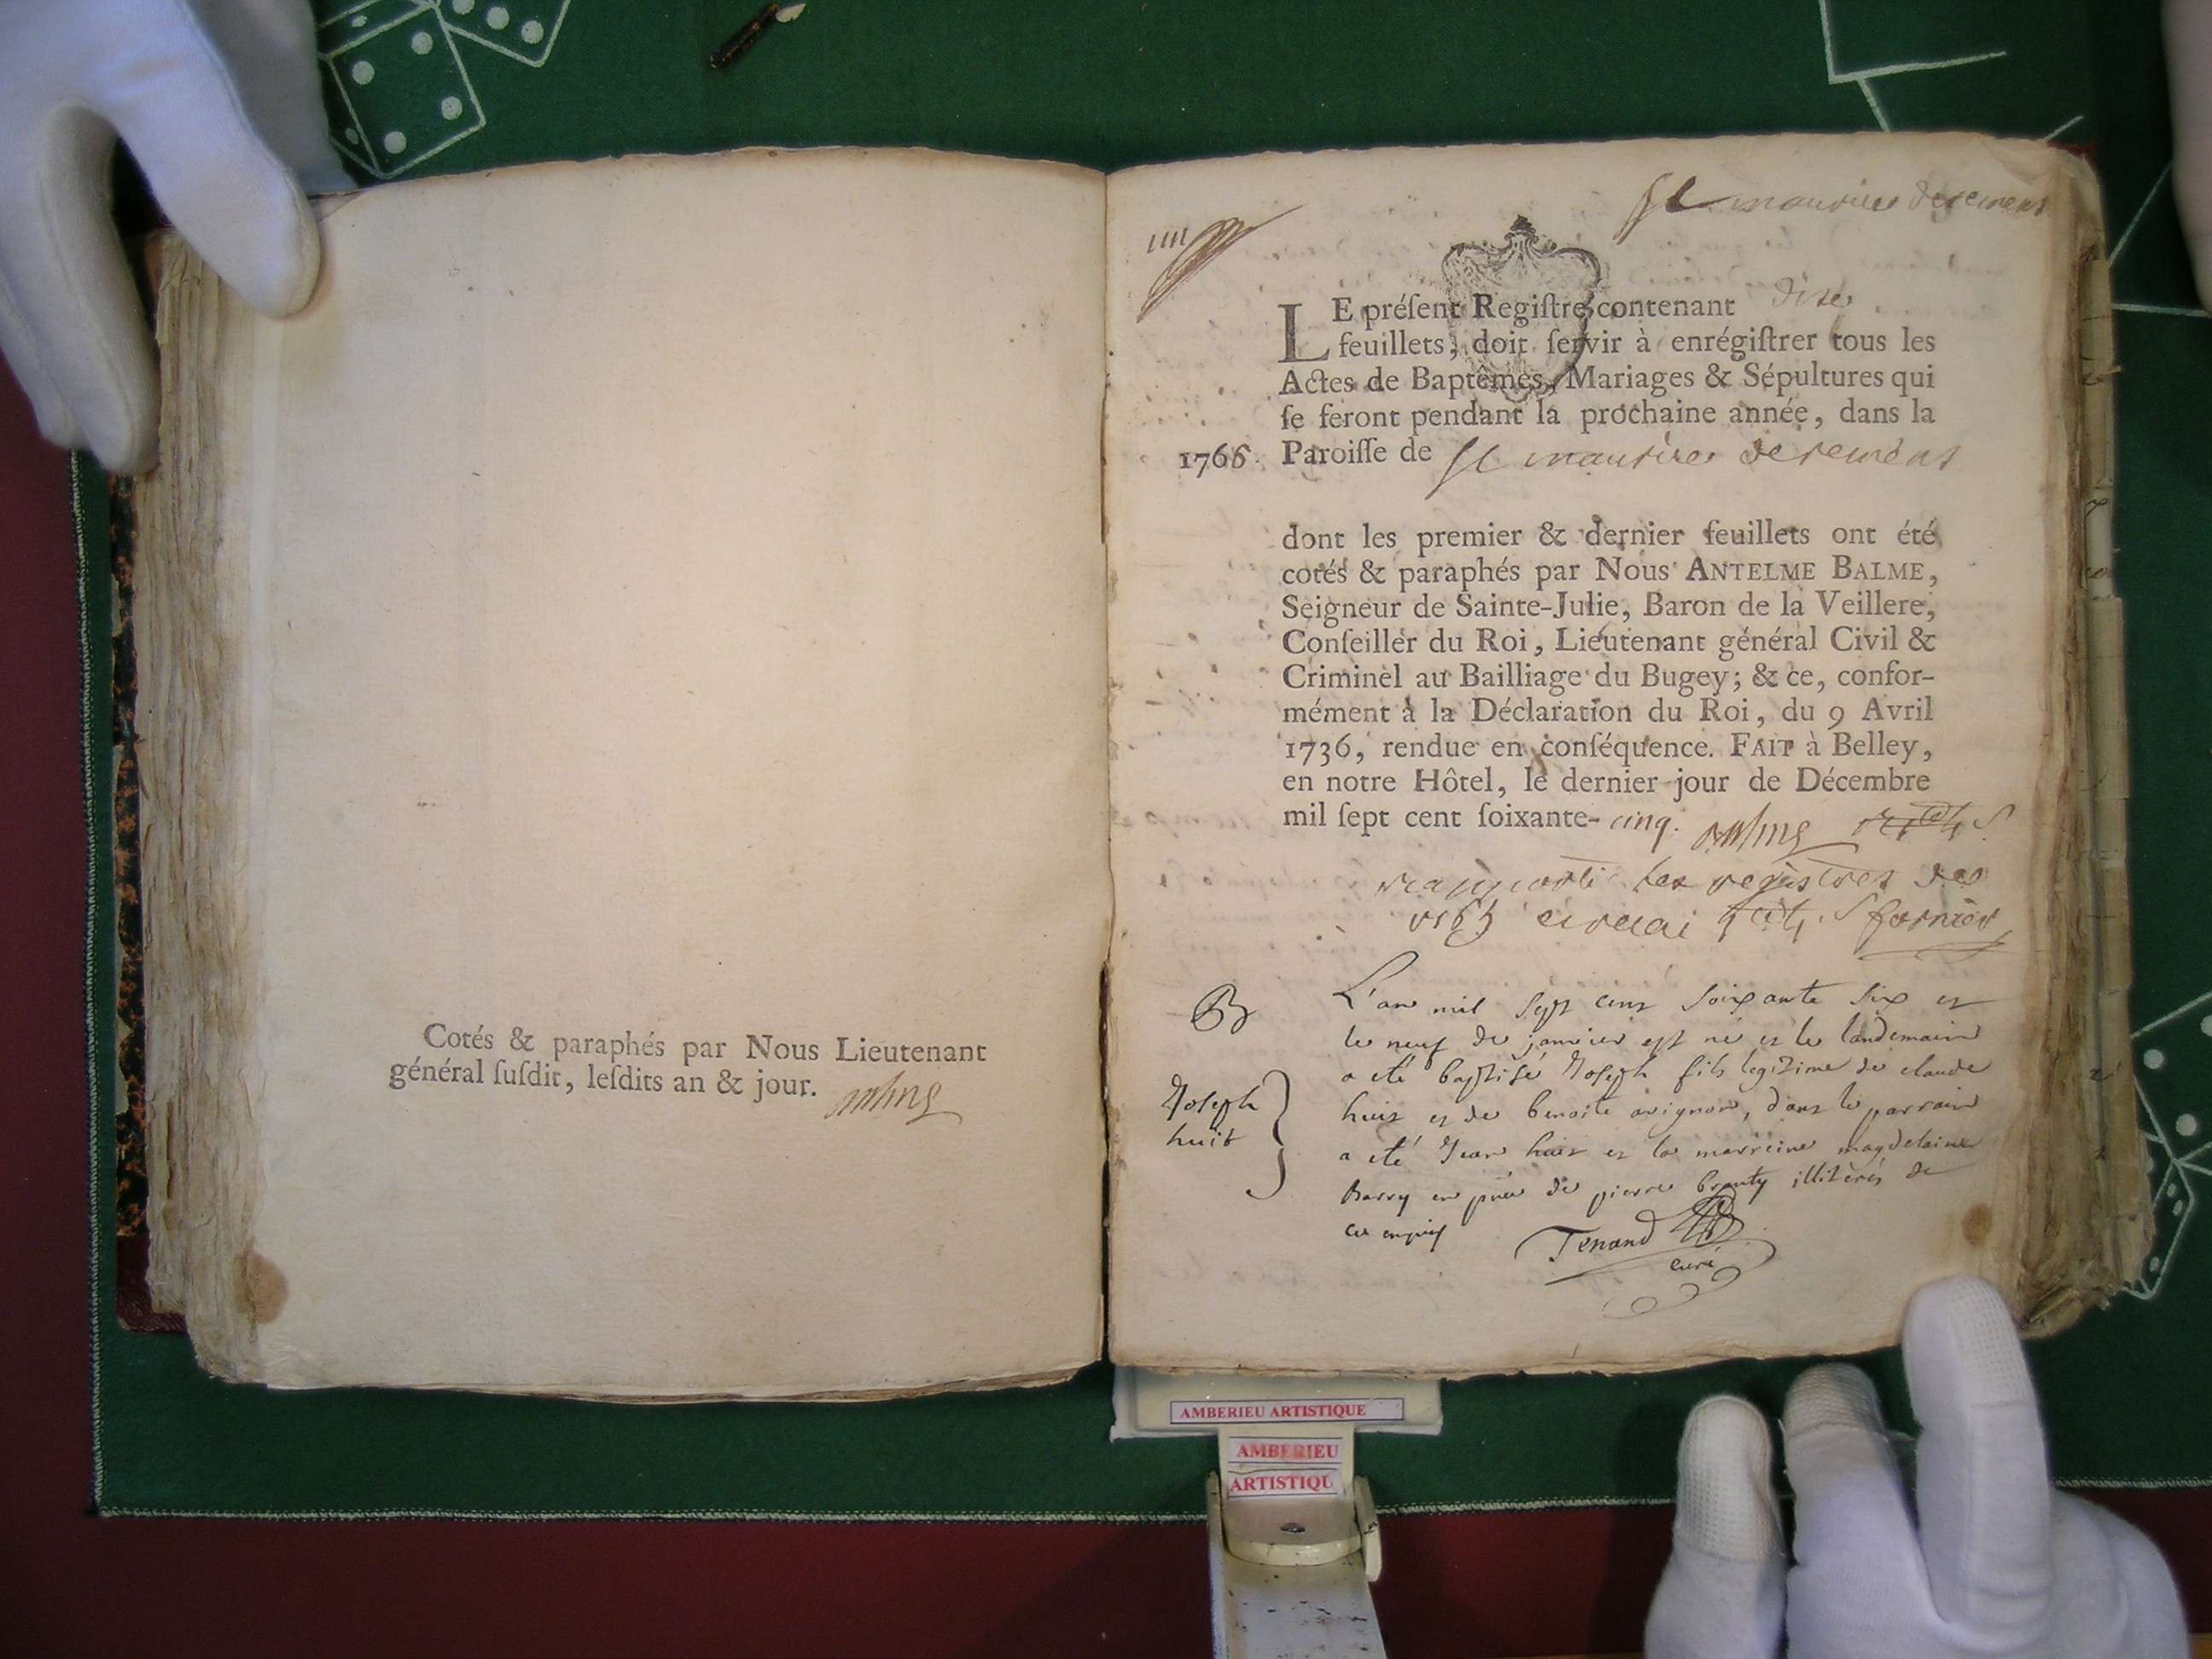 Cotés & paraphés par Nous Lieutenant
général ſuſdit, leſdits an & jour.
st maurice deremens
LE préſent Regiſtre contenant dix
feuillets, doit ſervir à enrégiſtrer tous les
Actes de Baptêmes, Mariages & Sépultures qui
ſe feront pendant la prochaine année, dans la
1766. Paroiſſe de st maurice deremens
dont les premier & dernier feuillets ont été
cotés & paraphés par Nous ANTELME BALME,
Seigneur de Sainte-Julie, Baron de la Veillere,
Conſeiller du Roi, Lieutenant général Civil &
Criminel au Bailliage du Bugey; & ce, confor-
mément à la Déclaration du Roi, du 9 Avril
1736, rendue en conſéquence. FAIT à Belley,
en notre Hôtel, le dernier jour de Décembre
mil ſept cent ſoixante-cinq. balme
les registres des
B
L'an mil sept cent soixante six et
le neuf de janvier est né et le landemain
a eté baptisé Joseph fils legitime de claude
Joseph
huit et de benoite avignon, dont le parrain
huit
a eté Jean huit et la marreine magdelaine
Barry en pnce de pierre branty illiterés de
ce enquis
Tenand
curé
AMBERIEU ARTISTIQUE
AMBERIEU
ARTISTIQU